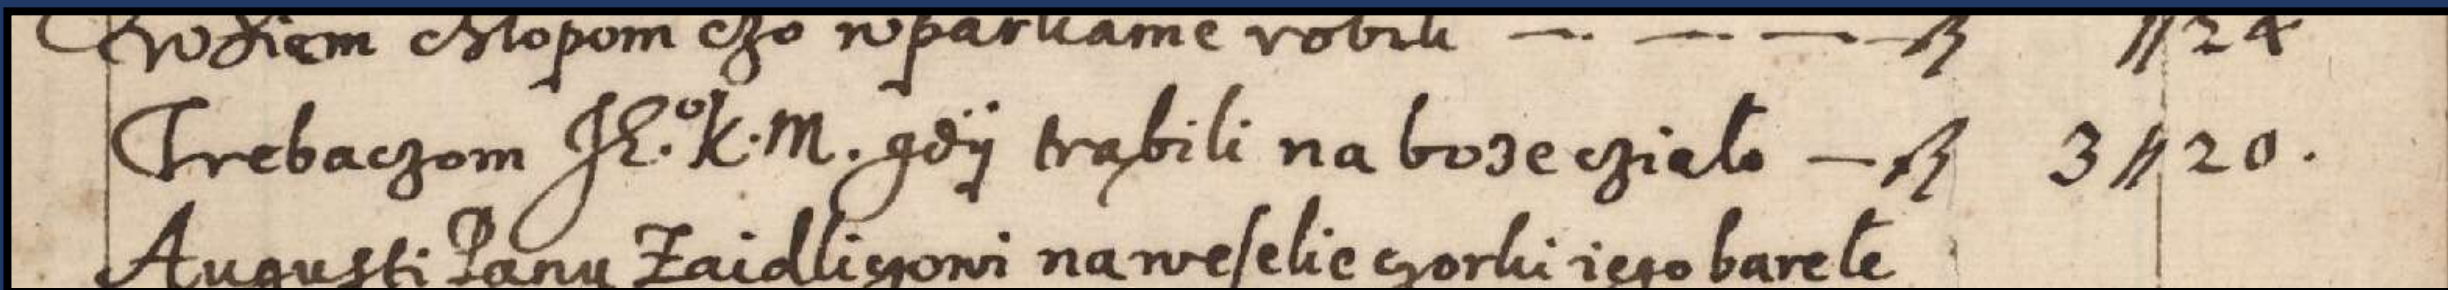 chlopom czo wparkanie robili — — — — fl // 24
Trebaczom JE.º K. M. gdÿ trąbili na boze cziało — fl 3 // 20.
Augusti Panu Zaidliczowi na weselie czorki iego barełę